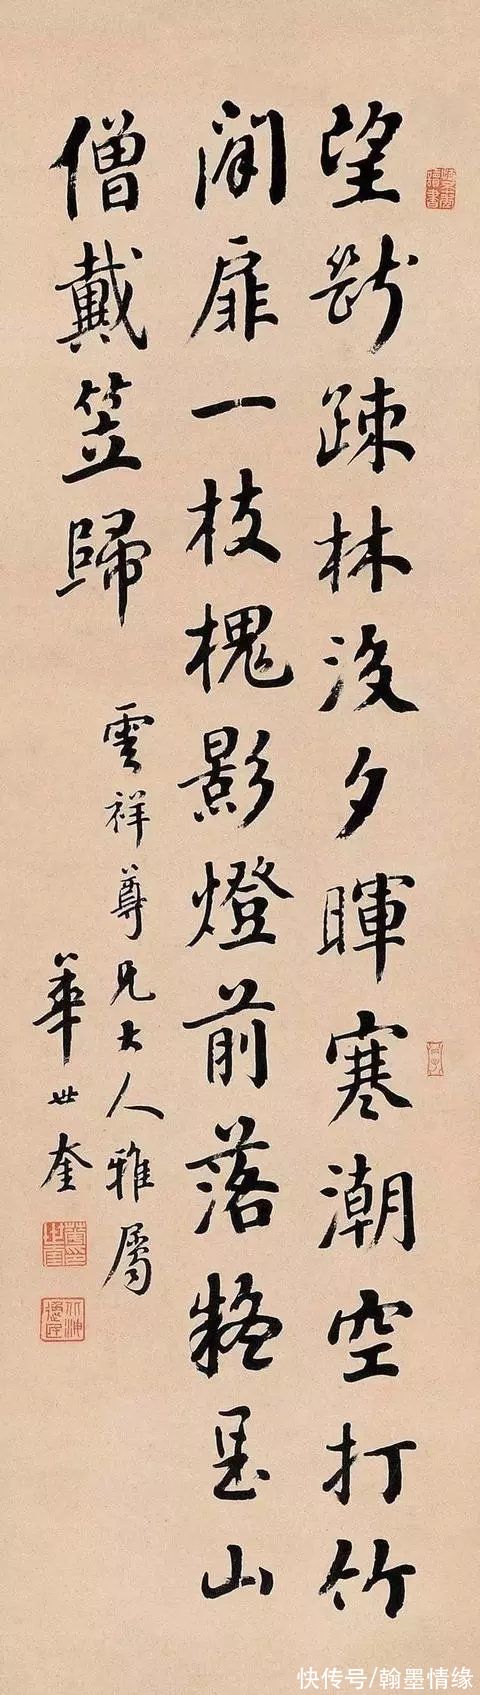 望斷疎林沒夕暉寒潮空打竹
閒扉一枝槐影燈前落疑是山
僧戴笠歸
雲祥尊兄大人雅屬
華世奎
快传号/翰墨情缘